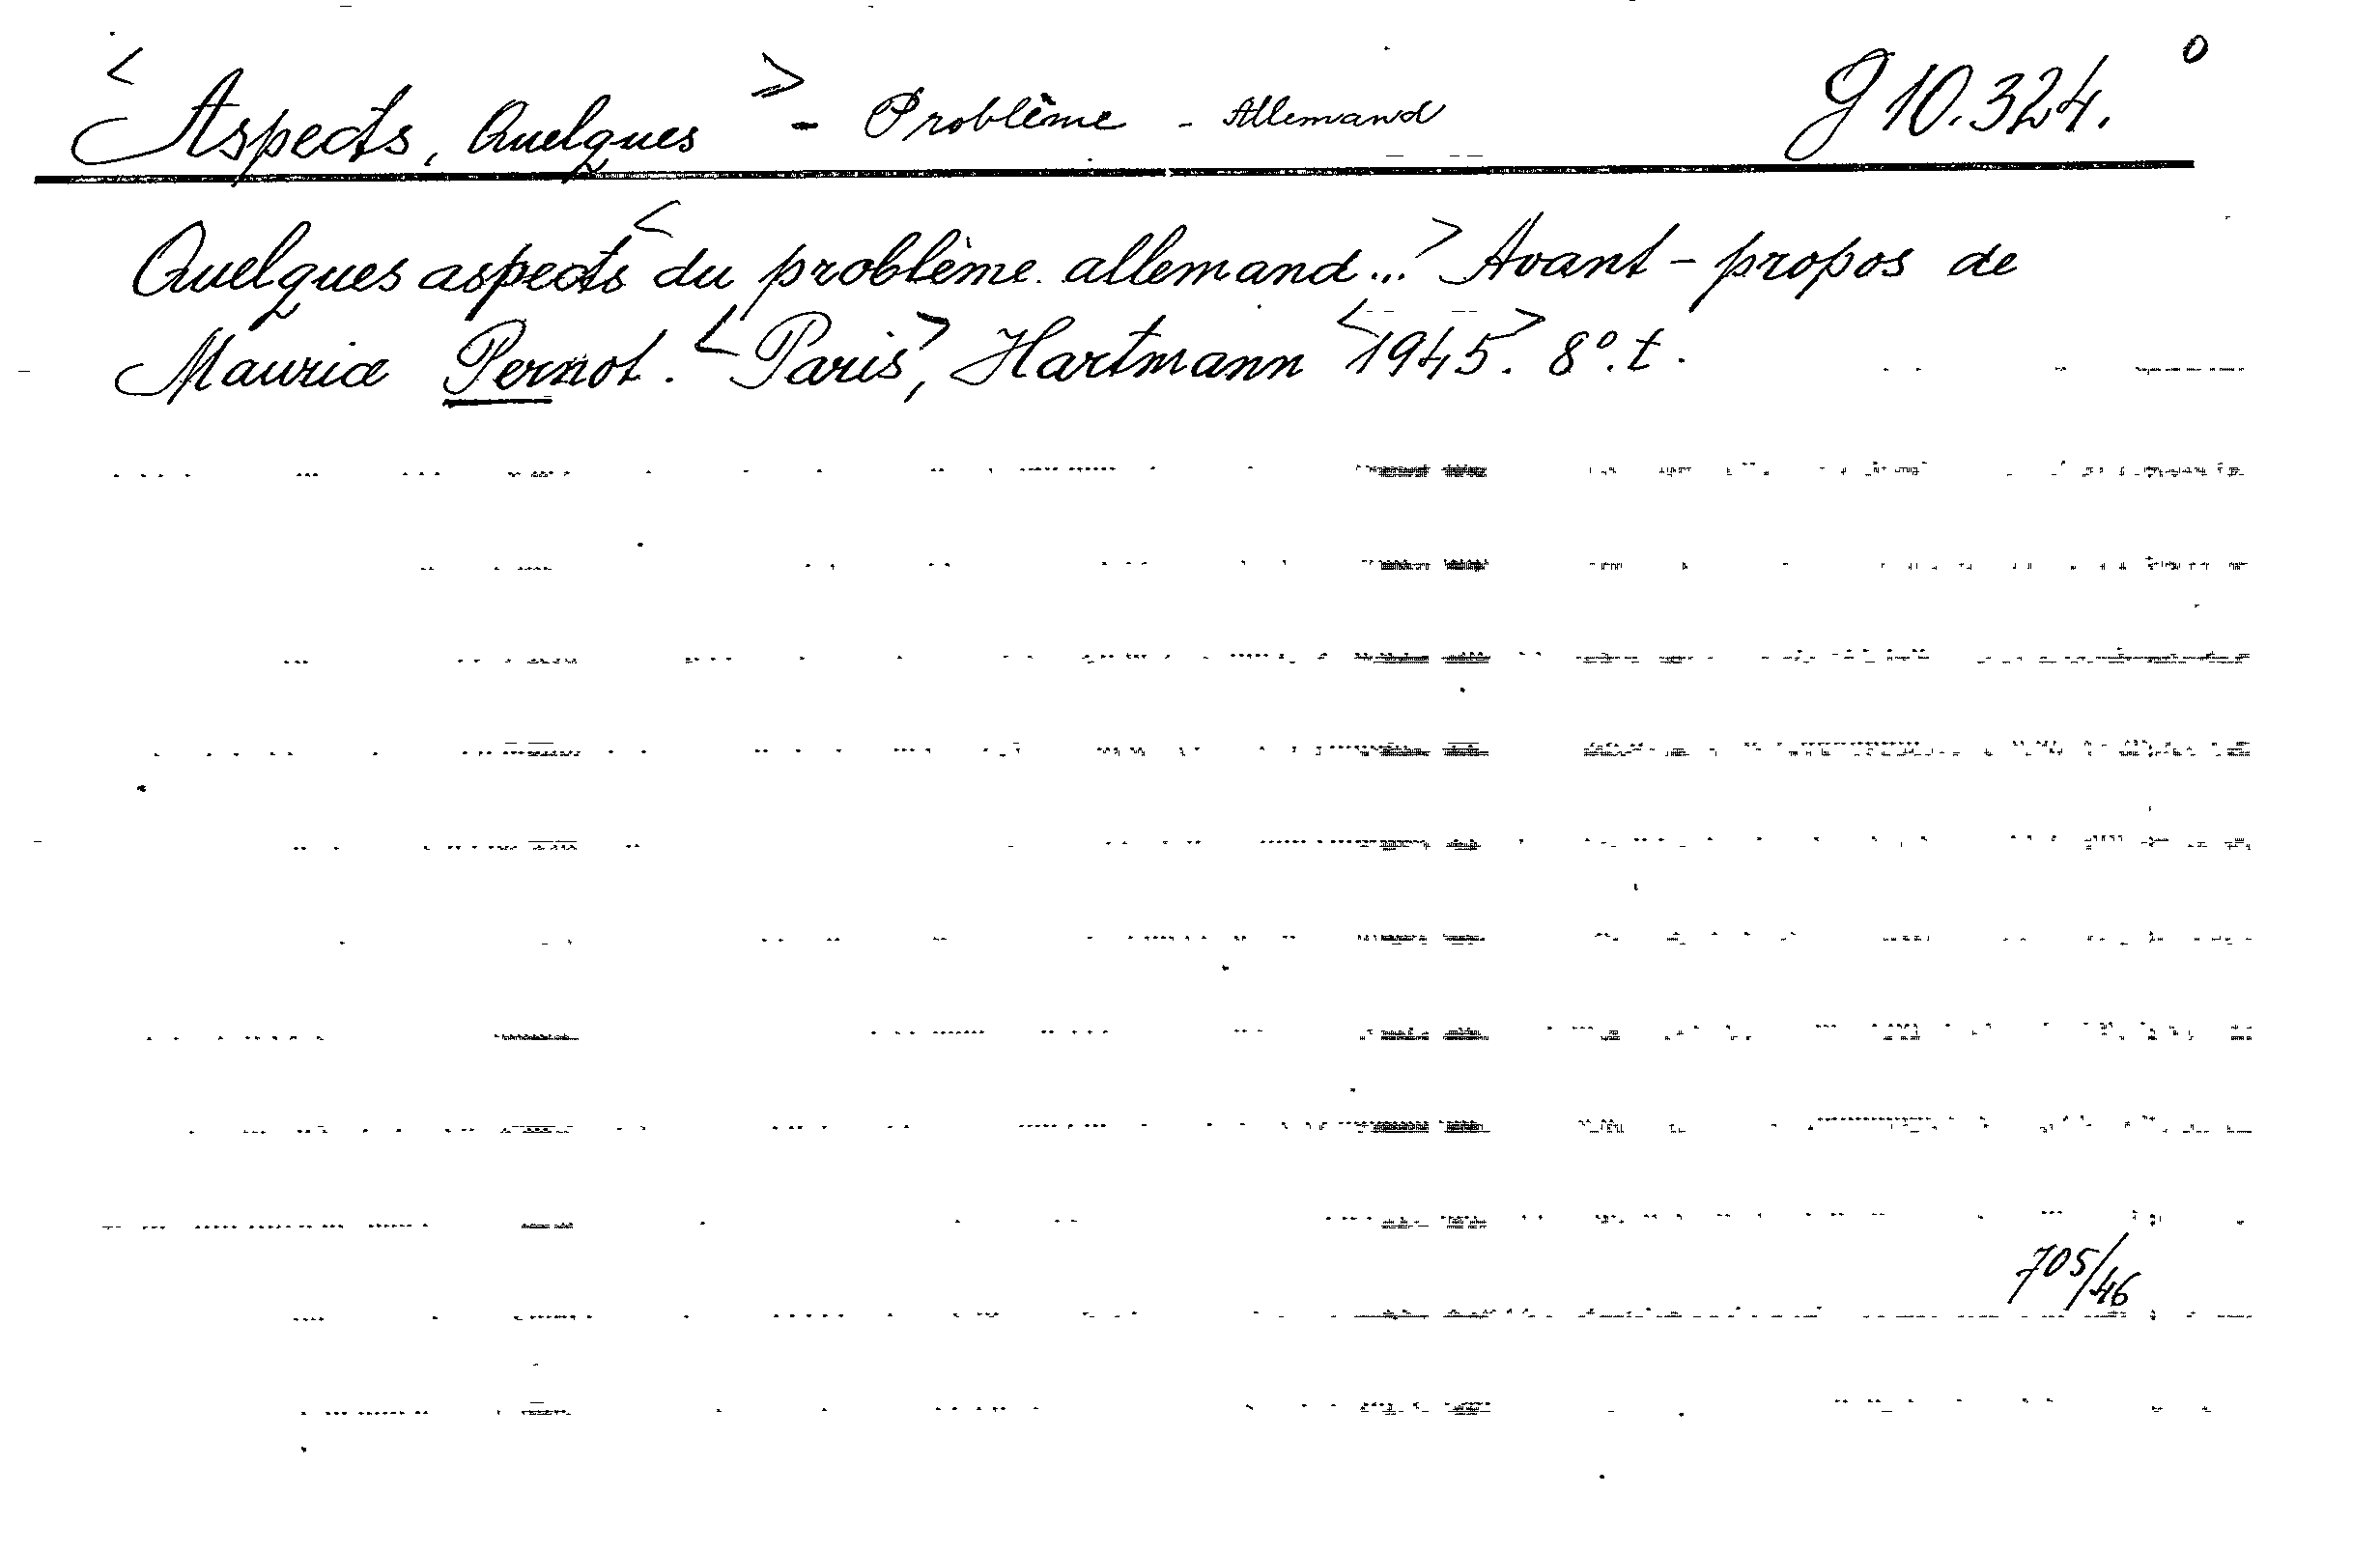 <Aspects, Quelques> - Problème - Allemand G 10.324. o
Quelques <aspects du problème allemand...> Avant-propos de
Maurice Pernot. <Paris>, Hartmann <1945>. 8º. t.
705/46